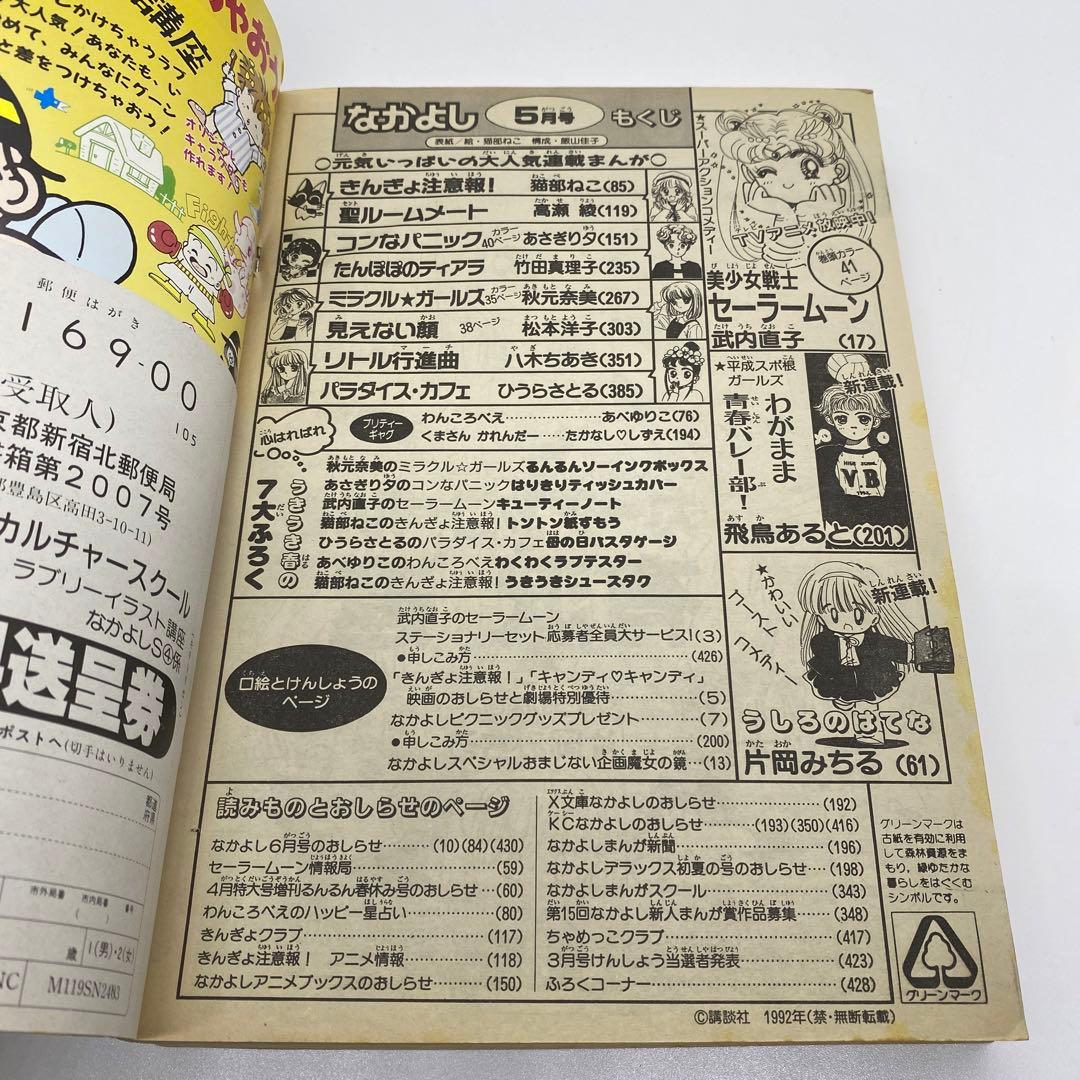 講座
しかけちゃうラブ
大人気！あなたも、い
めて、みんなにグーン
と差をつけちゃおう！
オリジナル
キャラクターも
作れます
Fight
郵便はがき
169-00
105
受取人)
京都新宿北郵便局
箱第2007号
豊島区高田3-10-11)
カルチャースクール
ラブリーイラスト講座
なかよしS④係
送呈券
ポストへ(切手はいりません)
都道
府県
市外局番 市内局番 番号
( )
歳 1(男)・2(女)
NC M119SN24‐3
なかよし 5月号 もくじ
表紙/絵・猫部ねこ 構成・飯山佳子
○元気いっぱいの大人気連載まんが○
きんぎょ注意報！ 猫部ねこ(85)
聖ルームメート 高瀬 綾(119)
コンなパニック カラー40ページ あさぎり夕(151)
たんぽぽのティアラ 竹田真理子(235)
ミラクル★ガールズ カラー35ページ 秋元奈美(267)
見えない顔 38ページ 松本洋子(303)
リトル行進曲 八木ちあき(351)
パラダイス・カフェ ひうらさとる(385)
心はればれ
プリティーギャグ
わんころべえ……………あべゆりこ(76)
くまさん かれんだー……たかなし♡しずえ(194)
うきうき春の
7大ふろく
秋元奈美のミラクル☆ガールズるんるんソーイングボックス
あさぎり夕のコンなパニックはりきりティッシュカバー
武内直子のセーラームーンキューティーノート
猫部ねこのきんぎょ注意報！トントン紙ずもう
ひうらさとるのパラダイス・カフェ母の日パスタケージ
あべゆりこのわんころべえわくわくラブテスター
猫部ねこのきんぎょ注意報！うきうきシューズタグ
口絵とけんしょうの
ページ
武内直子のセーラームーン
ステーショナリーセット応募者全員大サービス！(3)
●申しこみ方……………(426)
「きんぎょ注意報！」「キャンディ♡キャンディ」
映画のおしらせと劇場特別優待……(5)
なかよしピクニックグッズプレゼント……(7)
●申しこみ方……………(200)
なかよしスペシャルおまじない企画魔女の鏡…(13)
★スーパーアクションコメディー
TVアニメ放映中！
巻頭カラー
41
ページ
美少女戦士
セーラームーン
武内直子 (17)
★平成スポ根
ガールズ
新連載！
わがまま
青春バレー部！
HIGH SCHOOL
V.B
1992.
飛鳥あると(201)
★かわいい
ゴースト
コメディー
新連載！
うしろのはてな
片岡みちる(61)
読みものとおしらせのページ
なかよし6月号のおしらせ……(10)(84)(430)
セーラームーン情報局……………(59)
4月特大号増刊るんるん春休み号のおしらせ…(60)
わんころべえのハッピー星占い……(80)
きんぎょクラブ……………(117)
きんぎょ注意報！ アニメ情報……(118)
なかよしアニメブックスのおしらせ……(150)
X文庫なかよしのおしらせ……………(192)
KCなかよしのおしらせ……(193)(350)(416)
なかよしまんが新聞……………(196)
なかよしデラックス初夏の号のおしらせ…(198)
なかよしまんがスクール……………(343)
第15回なかよし新人まんが賞作品募集……(348)
ちゃめっこクラブ……………(417)
3月号けんしょう当選者発表……………(423)
ふろくコーナー……………(428)
グリーンマークは
古紙を有効に利用
して森林資源をま
もり，緑ゆたかな
暮らしをはぐくむ
シンボルです。
グリーンマーク
©講談社 1992年(禁・無断転載)